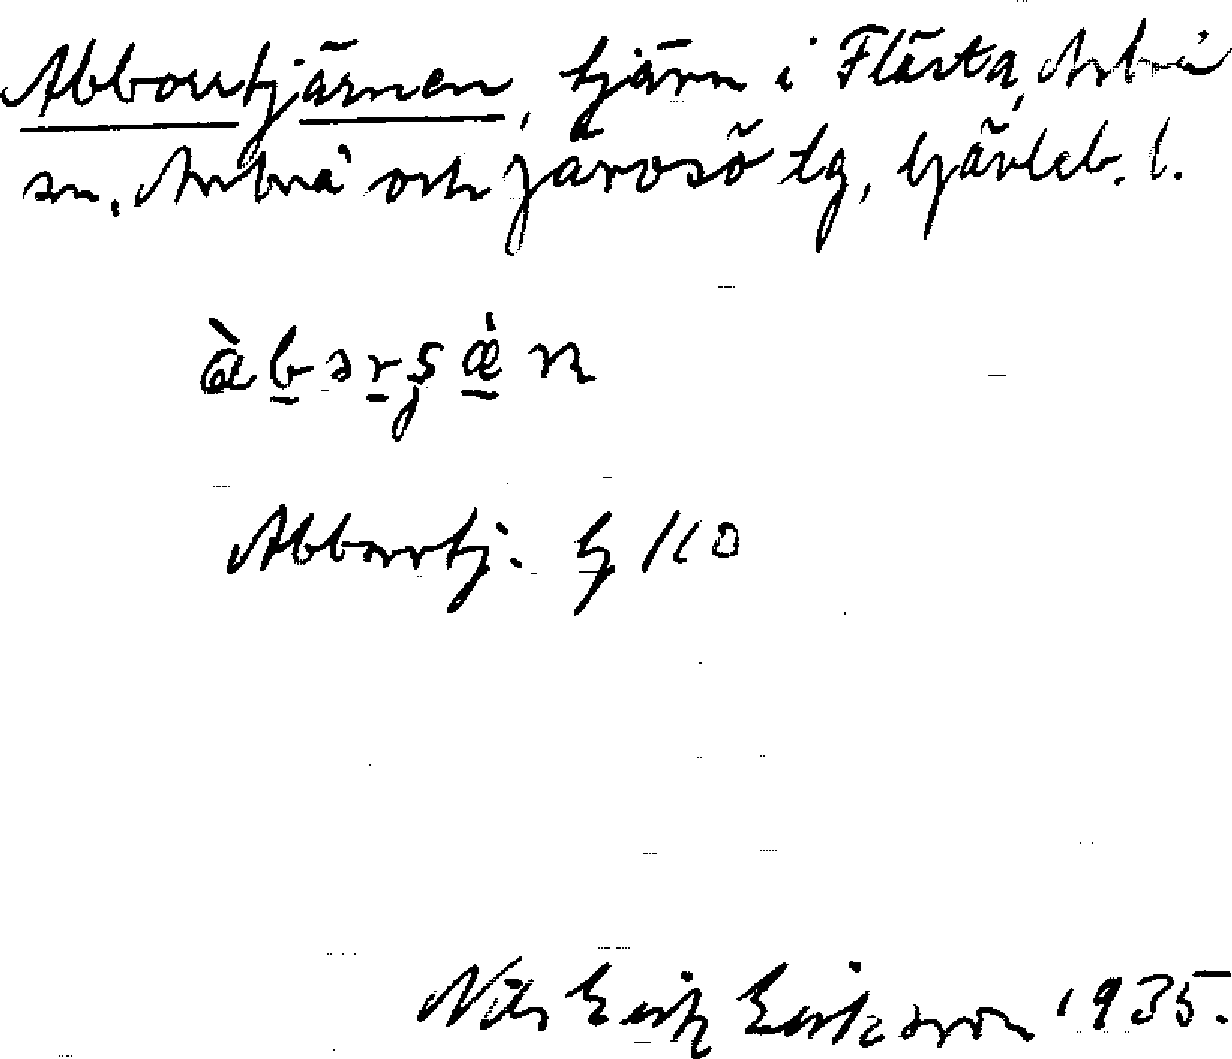 Abborrtjärnen, tjärn i Flästa, Arbrå
sn. Arbrå och Järvsö tg, Gävleb. l.
Abborrtj.
Nils Erik Eriksson 1935.